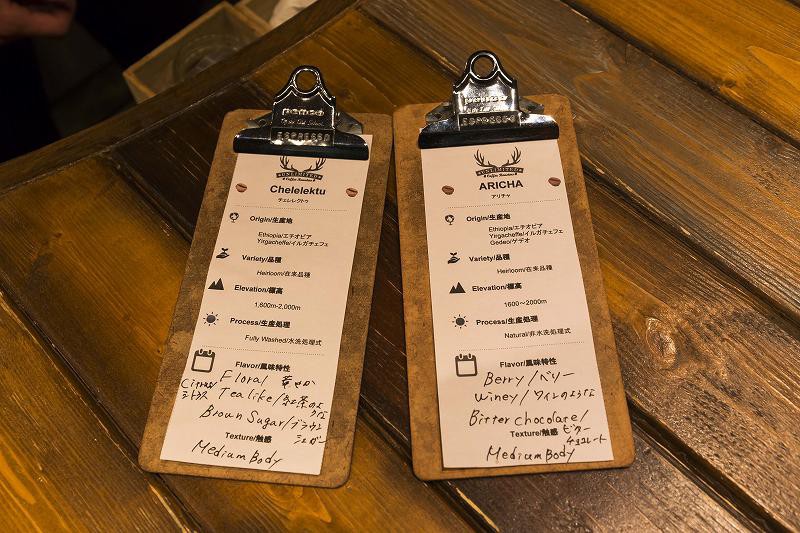 ESPRESSO
UNLIMITED
Coffee Roasters
Chelelektu
チェレレクトゥ
Origin/生産地
Ethiopia/エチオピア
Yirgacheffe/イルガチェフェ
Variety/品種
Heirloom/在来品種
Elevation/標高
1,600m-2,000m
Process/生産処理
Fully Washed/水洗処理式
Flavor/風味特性
Floral 華やか
Citrus/シトラス
Tea like/紅茶のような
Brown Sugar/ブラウンシュガー
Texture/触感
Medium Body
ESPRESSO
UNLIMITED
Coffee Roasters
ARICHA
アリチャ
Origin/生産地
Ethiopia/エチオピア
Yirgacheffe/イルガチェフェ
Gedeo/ゲデオ
Variety/品種
Heirloom/在来品種
Elevation/標高
1600～2000m
Process/生産処理
Natural/非水洗処理式
Flavor/風味特性
Berry/ベリー
Winey/ワインのような
Bitter chocolate/
ビターチョコレート
Texture/触感
Medium Body